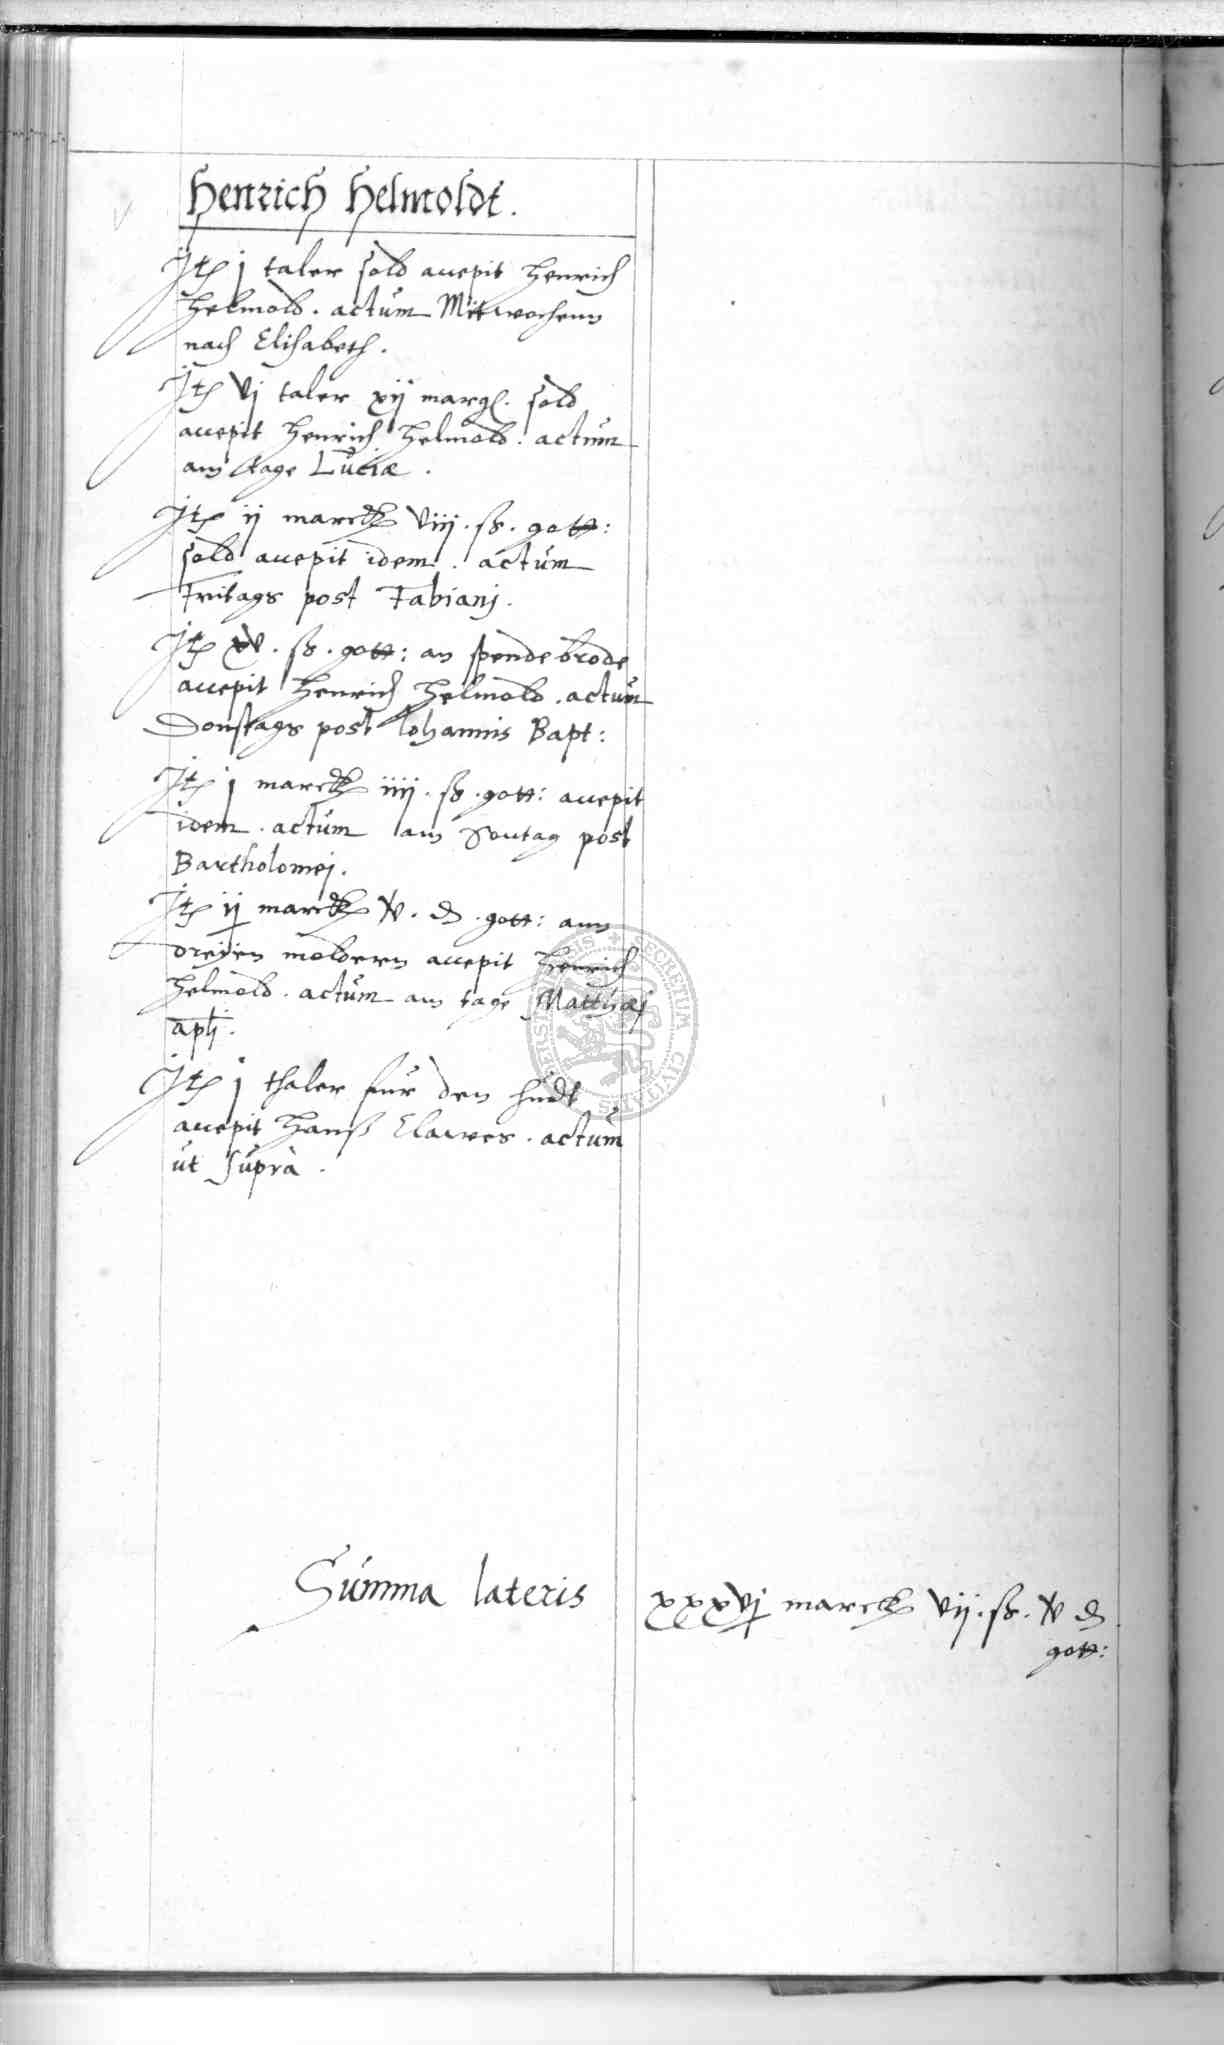 Henrich Helmoldt.
Itē j taler sold accepit Henrich
Helmold. actum Mitwochenn
nach Elisabeth.
Itē vj taler xij marg. sold
accepit Henrich Helmold. actum
am tage Luciæ.
Itē ij marck viij. ß. gott:
sold accepit idem. actum
Fritags post Fabianj.
Itē xv. ß. gott: an spendebrode
accepit Henrich Helmold. actum
Donstags post Johannis Bapt:
Itē j marck iiij. ß. gott: accepit
idem. actum am Sontag post
Bartholomej.
Itē ij marck v. ₰. gott: ann
dreyen moldern accepit Henrich
Helmold. actum am tage Matthæj
aplj.
Itē j thaler fur den hudt
accepit Hanß Clawes. actum
ut suprà.
Summa lateris xxxvj marck vij. ß. v ₰
gott:
SECRETUM CIVITATIS